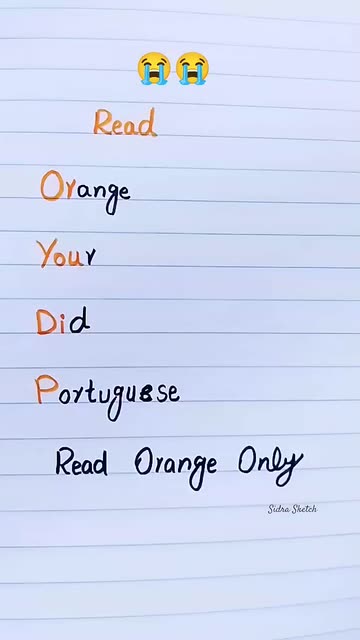 😭😭
Read
Orange
Your
Did
Portuguese
Read Orange Only
Sidra Sketch